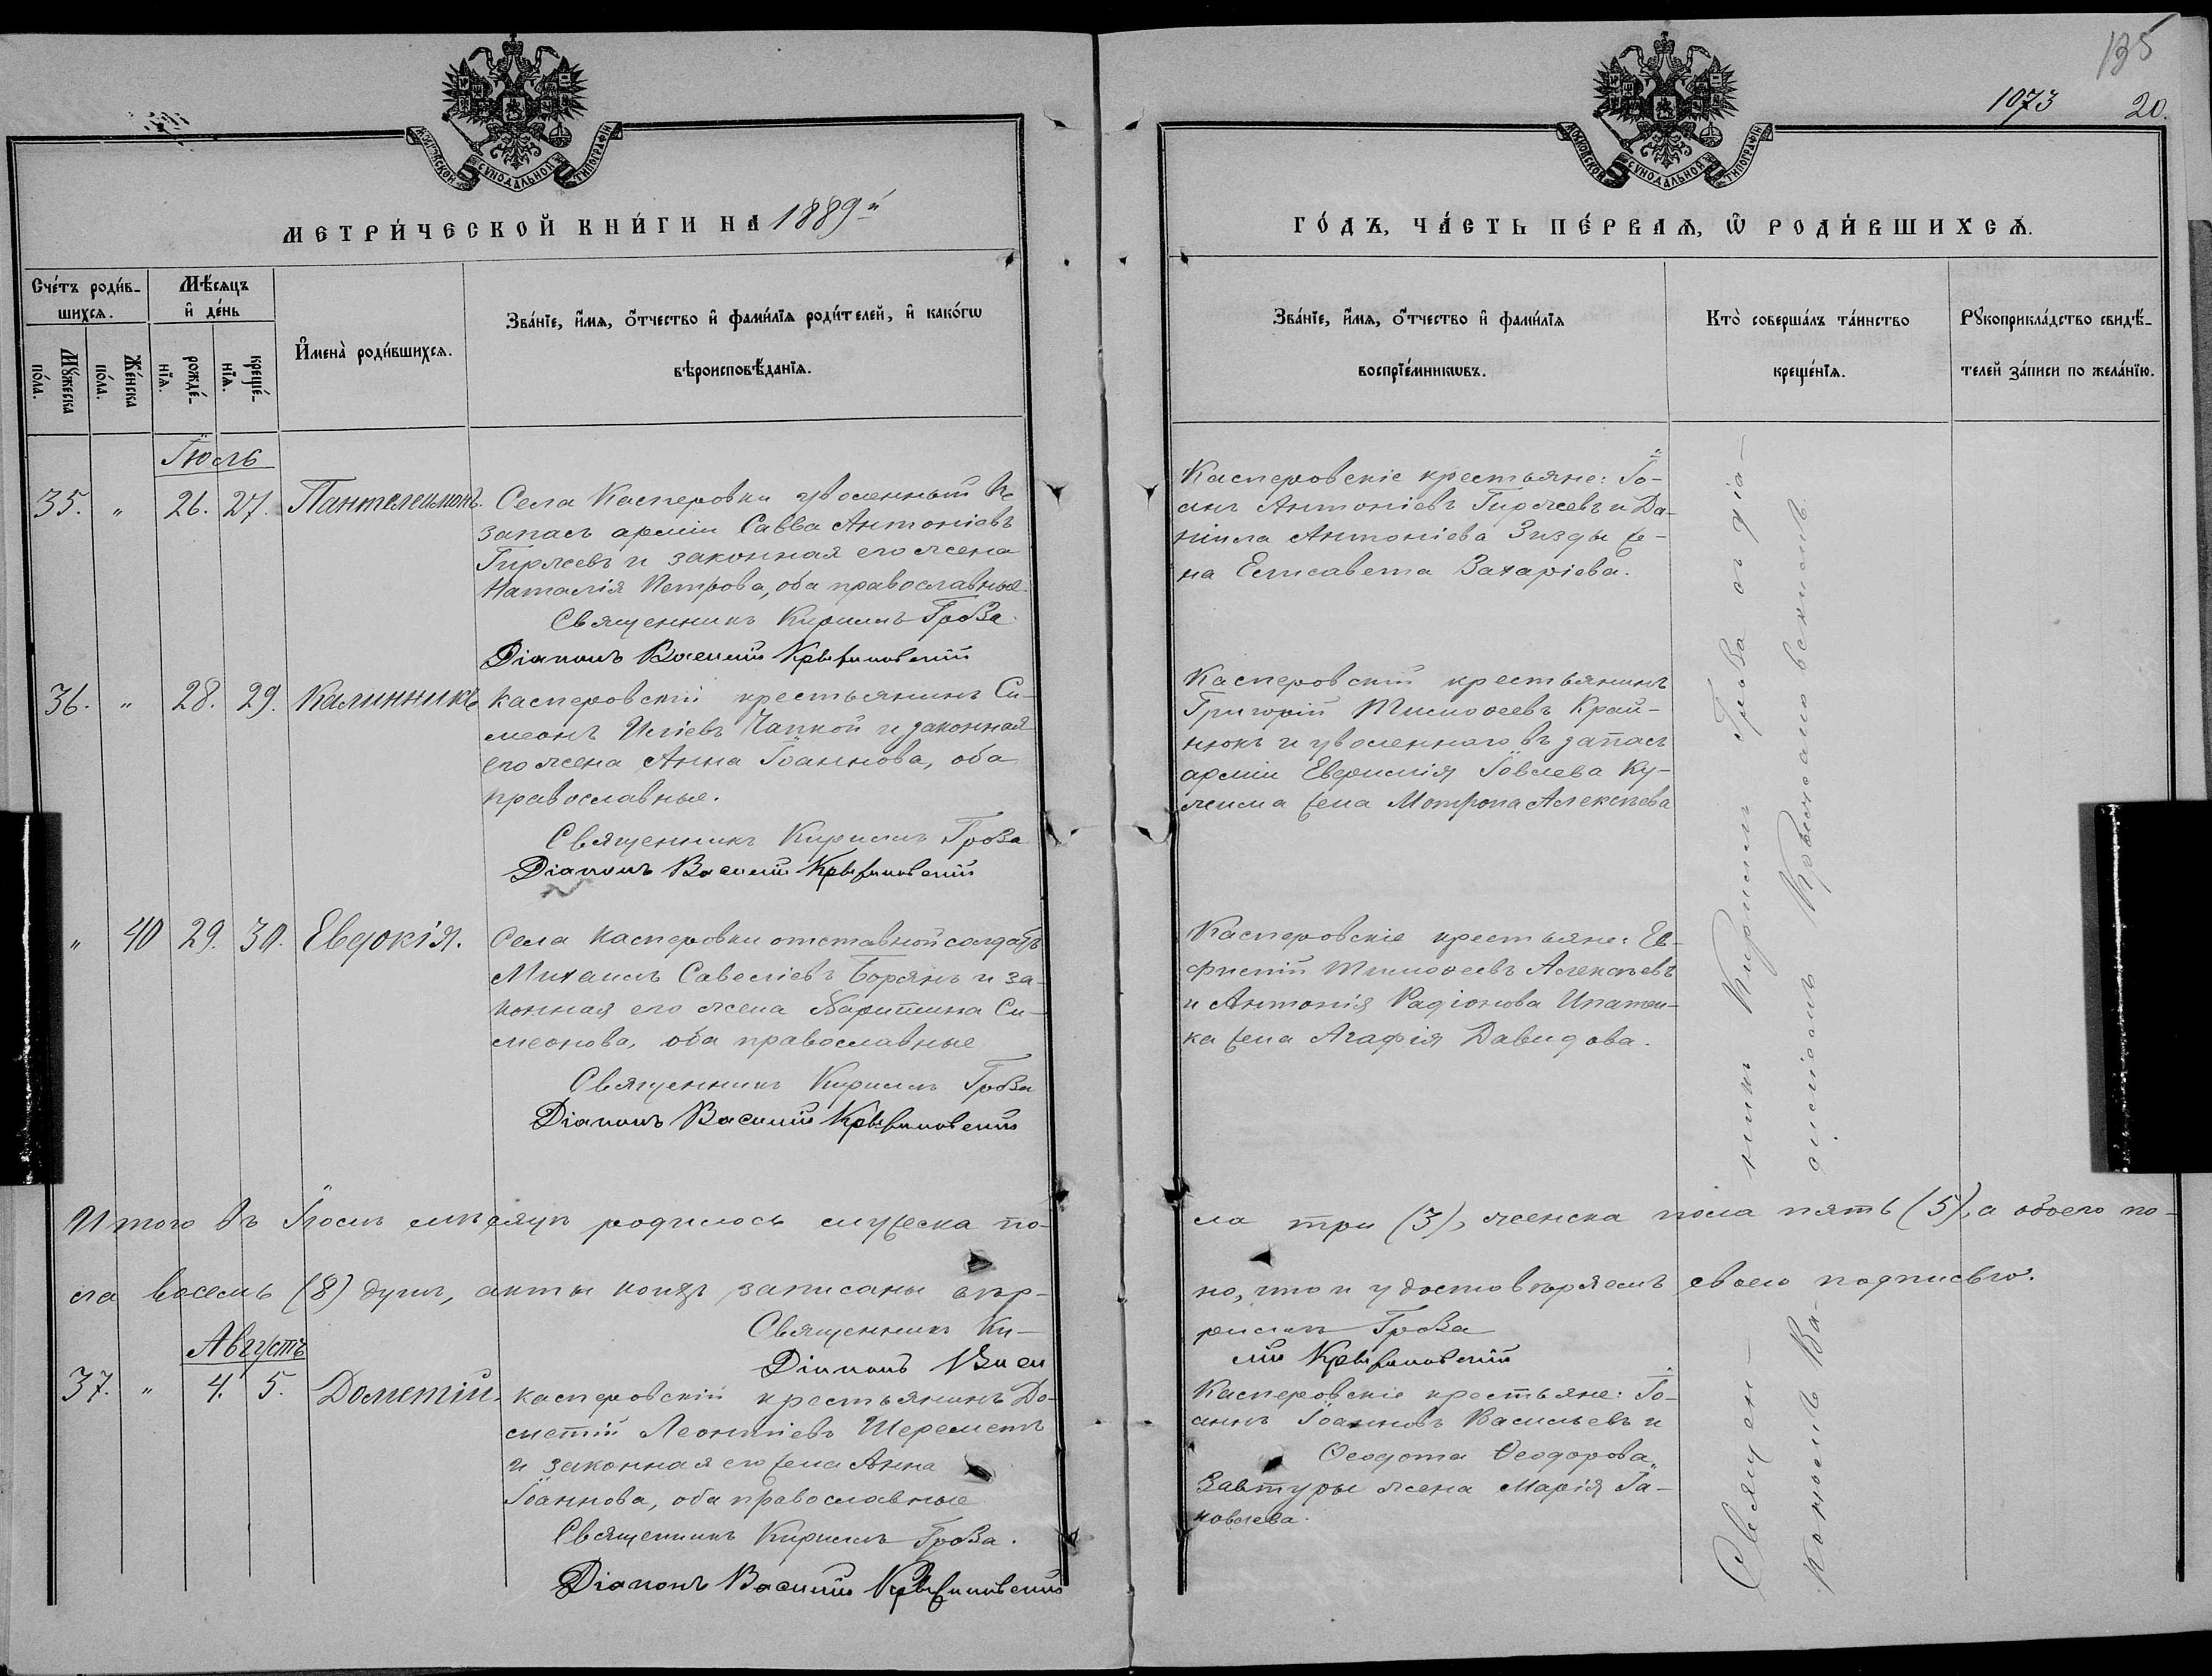 135
1073 20.
МОСКОВСКОЙ СУНОДАЛЬНОЙ ТИПОГРАФІИ
МОСКОВСКОЙ СУНОДАЛЬНОЙ ТИПОГРАФІИ
МЕТРИ́ЧЕСКОЙ КНИ́ГИ НА 1889й
ГО́ДЪ, ЧА́СТЬ ПЕ́РВАѦ, Ѿ РОДИ́ВШИХСѦ.
Сче́тъ роди́в-
шихсѧ.
Мꙋ́жеска
по́ла.
Же́нска
по́ла.
Мѣ́сѧцъ
и҆ де́нь
рожде́-
нїѧ.
креще́-
нїѧ.
И҆мена̀ роди́вшихсѧ.
Зва́нїе, и҆́мѧ, ѻ҆́тчество и҆ фами́лїѧ роди́телей, и҆ како́гѡ
вѣроисповѣ́данїѧ.
Зва́нїе, и҆́мѧ, ѻ҆́тчество и҆ фами́лїѧ
воспрїе́мникѡвъ.
Кто̀ соверша́лъ та́инство
креще́нїѧ.
Рꙋкоприкла́дство свидѣ́-
телей за́писи по жела́нїю.
Іюль
35. " 26. 27. Пантелеимонъ.
Села Касперовки уволенный въ
запасъ арміи Савва Антоніевъ
Гиржевъ и законная его жена
Наталія Петрова, оба православные.
Священникъ Кириллъ Гроза
Діаконъ Василій
Касперовскіе крестьяне: Іо-
анъ Антоніевъ Гиржевъ и Да-
ніила Антоніева Зизды же-
на Елисавета Захаріева.
36. " 28. 29. Калинникъ
Касперовскій крестьянинъ Си-
меонъ Иліевъ Чапкой и законная
его жена Анна Іоаннова, оба
православные.
Священникъ Кириллъ Гроза
Діаконъ Василій
Касперовскій крестьянинъ
Григорій Тимоѳеевъ Край-
нюкъ и уволеннаго въ запасъ
арміи Іовлева Ку-
жена Алексѣева
" 40 29. 30. Евдокія.
Села Касперовки отставной солдатъ
Михаилъ Савеліевъ Борянъ и за-
конная его жена Харитина Си-
меонова, оба православные
Священникъ Кириллъ Гроза
Діаконъ Василій
Касперовскіе крестьяне: Ев-
фимій Тимоѳеевъ Алексѣевъ
и Антонія Радіонова Ипатен-
ка жена Агафія Давидова.
Итого въ Іюлѣ мѣсяцѣ родилось мужеска по-
ла три (3), женска пола пять (5), а обоего по-
ла восемь (8) душъ, акты коихъ записаны вѣр-
но, что и удостовѣряемъ своею подписью.
Священникъ Ки-
риллъ Гроза
Діаконъ Васи
лій
Августъ
37. " 4. 5. Дометій.
касперовскій крестьянинъ До-
метій Леонтіевъ Шереметъ
и законная его жена Анна
Іоаннова, оба православные
Священникъ Кириллъ Гроза.
Діаконъ Василій
Касперовскіе крестьяне: Іо-
аннъ Іоанновъ Васильевъ и
Ѳеодота Ѳеодорова
Завтуры жена Марія Іа-
ковлева.
Священ-
никъ Кириллъ Гроза съ діа-